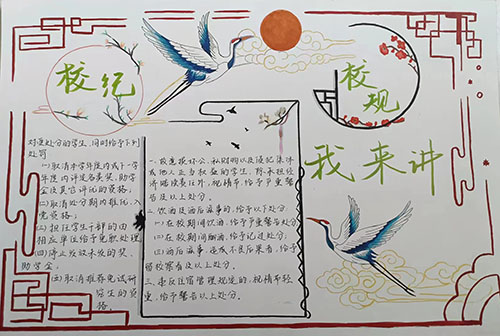 校纪
校规
我来讲
对受处分的学生,同时给予下列
处罚
(一)取消本学年度内或下一学
年度内评定各类奖、助学
金及其它评优的资格;
(二)取消处分期内推优入
党资格;
(三)担任学生干部的由
相应单位给予免职处理
(四)停止发放未发的奖、
助学金;
(五)取消推荐免试研
究生的资
格。
一、故意损坏公、私财物以及侵犯集体
或他人正当权益的学生,除承担经
济赔偿责任外,视情节给予严重警
告及以上处分。
二、饮酒及酒后滋事的,给予以下处分
(一)在校期间饮酒,给予严重警告处分
(二)在校期间酗酒,给予记过处分;
(三)酒后滋事,造成不良后果者,给予
留校察看及以上处分。
三、违反住宿管理规定的,视情节轻
重,给予警告以上处分。